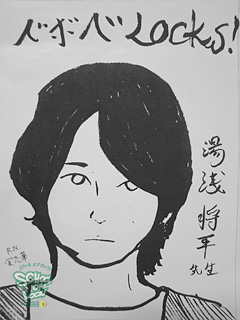 ベボベLOCKS!
湯浅将平
先生
RN
SCHOOL
OF
LOCK!